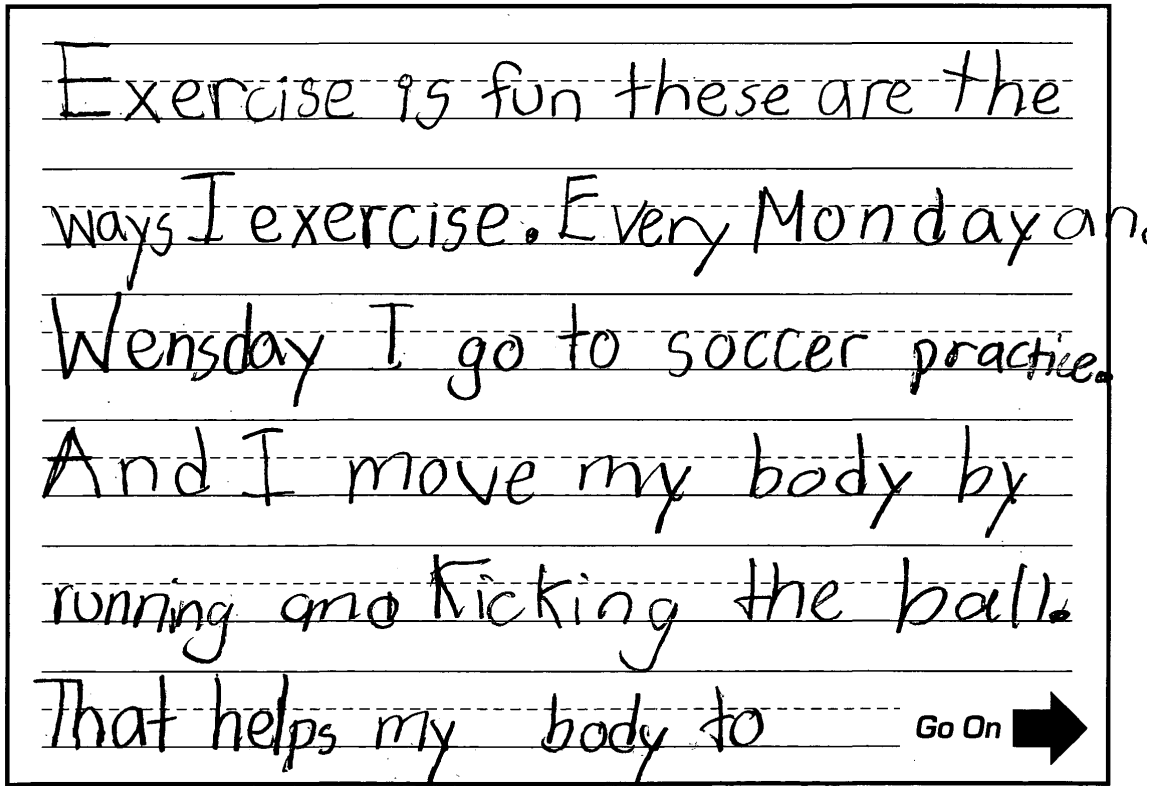 Exercise is fun these are the
ways I exercise. Every Monday an
Wensday I go to soccer practice.
And I move my body by
running and Kicking the ball.
That helps my body to
Go On